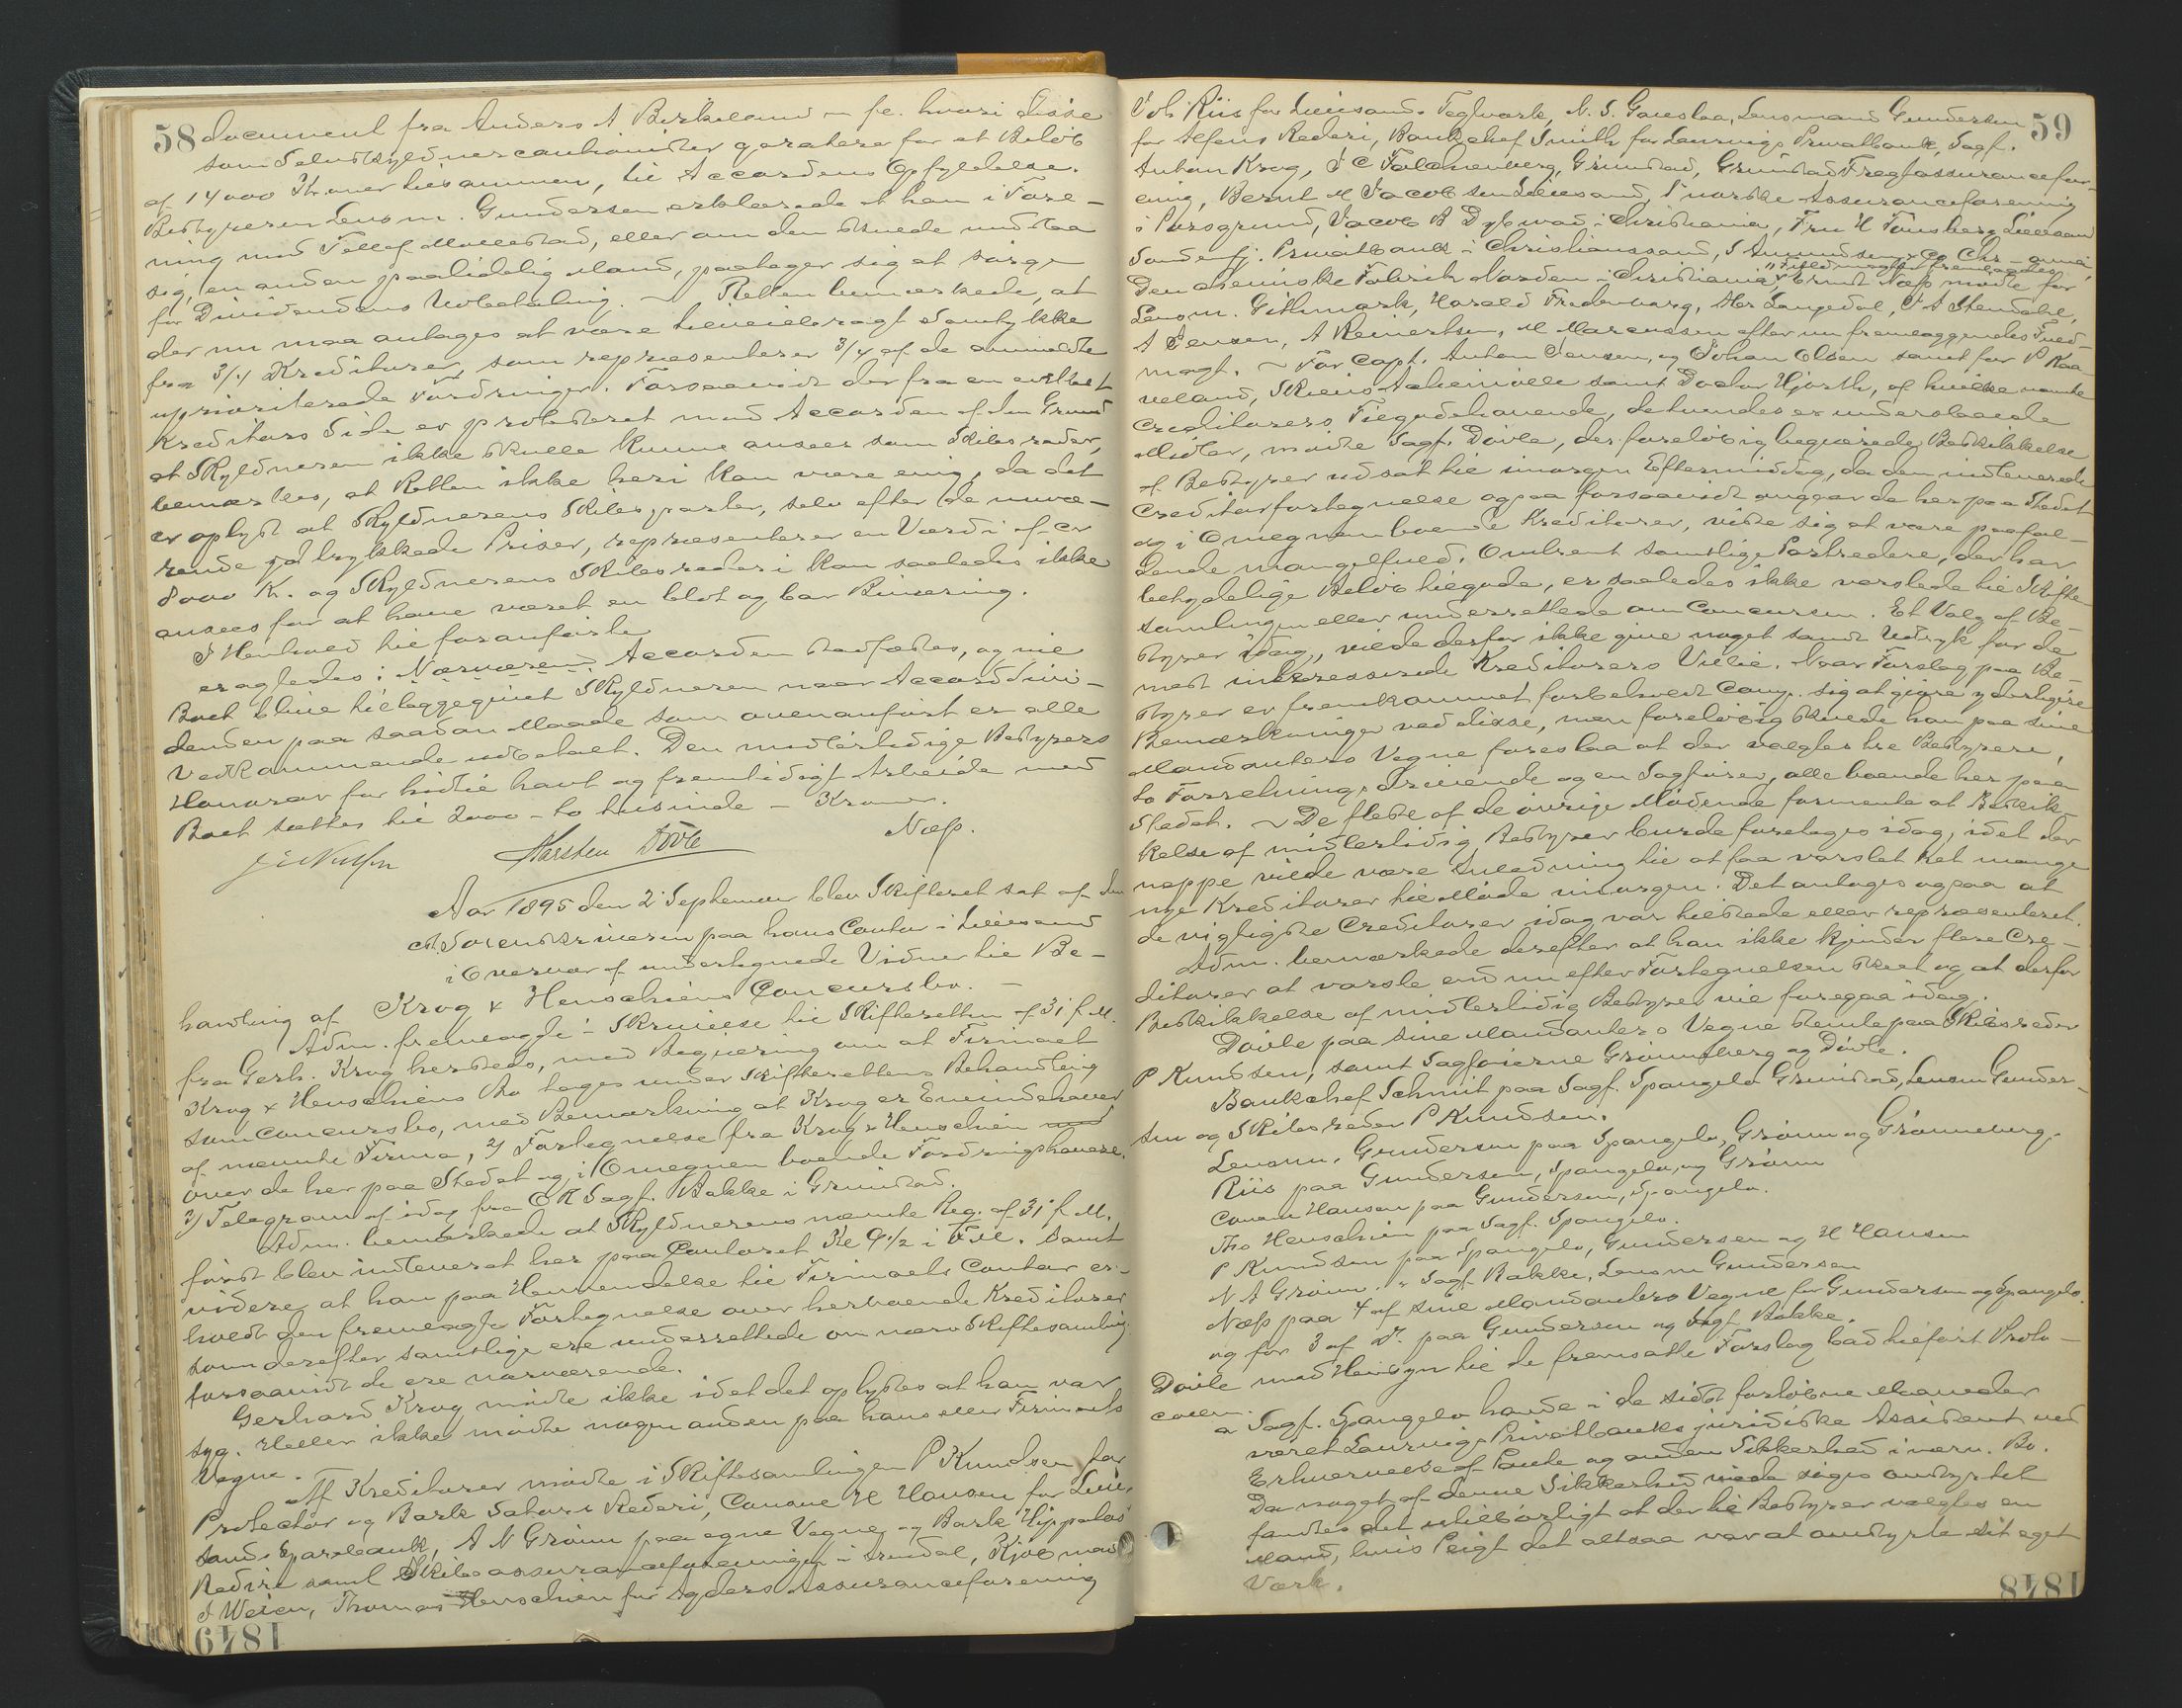 58 document fra Anders A Birkeland m fl. hvori disse
som Selvskyldnercautionister garanterer for et Beløb
af 14000 Kroner tilsammen, til Accordens Opfyldelse.
Bestyreren Lensm. Gundersen erklærede at han i Fore-
ning med Tellef Mollestad, eller om den skulde undslaa
sig, en anden paalidelig Mand, paatager sig at sørge
for Dividendens Udbetaling. — Retten bemærkede, at
der nu maa antages at være tilveiebragt Samtykke
fra 3/4 Kreditorer, som repræsenterer 3/4 af de anmeldte
uprioriterede Fordringer. Forsaavidt der fra en enkelt
Kreditors Side er protesteret mod Accorden af den Grund
at Skyldneren ikke skulle kunne ansees som Skibsreder,
bemærkes, at Retten ikke heri kan være enig, da det
er oplyst at Skyldnerens Skibsparter, selv efter de nuvæ-
rende nedtrykkede Priser, repræsenterer en Værdi af ca
8000 Kr. og Skyldnerens Skibsrederi kan saaledes ikke
ansees for at have været en blot og bar Binæring.
I Henhold til foranførte
eragtedes: Nærværende Accorden stadfæstes, og vil
Boet blive tilbagegivet Skyldneren naar Accorddivi-
denden paa saadan Maade som ovenanført er alle
Vedkommende udbetalt. Den midlertidige Bestyrers
Honorar for hidtil havt og fremtidigt Arbeide med
Boet sættes til 2000 - to tusinde - Kroner.
Karsten Dövle Næss.
Aar 1895 den 2 September blev Skifteret sat af den
cst. Sorenskriveren paa hans Contor i Lillesand
i Overvær af undertegnede Vidner til Be-
handling af Krog & Henschiens Concursbo. —
Adm. fremlagde 1 Skrivelse til Skifteretten af 31 f. M.
fra Gerh. Krog hersteds, med Begjæring om at Firmaet
Krog & Henschiens Bo tages under Skifterettens Behandling
som Concursbo, med Bemærkning at Krog er Eneindehaver
af nævnte Firma, 2) Fortegnelse fra Krog & Henschien
over de her paa Stedet og i Omegnen boende Fordringshavere.
3) Telegram af idag fra OR Sagf. Bakke i Grimstad.
Adm. bemærkede at Skyldnerens nævnte Beg. af 31 f. M.
først blev indleveret her paa Contoret Kl 9 1/2 i F.M. samt
videre, at han paa Henvendelse til Firmaets Contor er-
holdt den fremlagte Fortegnelse over herboende Kreditorer
som derefter samtlige ere underrettede om nærv Skiftesamling
forsaavidt de ere nærværende.
Gerhard Krog mødte ikke idet det oplystes at han var
syg. Heller ikke mødte nogen anden paa hans eller Firmaets
Vegne.
Af Kreditorer mødte i Skiftesamlingen P Knudsen for
Protector og Bark Saturs Rederi, Canone H Hansen for Lille-
sands Sparebank, A N Grönn paa egne Vegne og Bark Hippolas
Rederi samt Skibsassuranceforeningen i Arendal, Kjøbmand
J Weien, Thomas Henschien for Agders Assuranceforening
59
Joh Riis for Lillesands Teglværk, N. S. Gauslaa, Lensmand Gundersen
for Alfens Rederi, Bankchef Smith for Laurvigs Privatbank, Sagf.
Anton Krog, J C Falckenberg, Grimstad, Grimstad Fragtassurancefor-
ening, Bernt M Jacobsen Lillesand, norske Assuranceforening
i Porsgrund, Jacob B Dybwad i Christiania, Fru H Tønsberg Lillesand
Søndenfj. Privatbank i Christianssand, S Amundsen & Co Chr-ania,
Den chemiske Fabrik Norden i Christiania, Ernst Næss mødte for
Lensm. Githmark, Harald Fredenborg, Langedal, J A Stendahl,
A Jensen, A Reinertsen, M Marcussen efter nu fremlæggendes Fuld-
magt. — For Capt. Anton Jensen, og Johan Olsen samt for P Kaa-
veland, Skiens Achemiølle samt Doctor Hjorth, af hvilke nævnte
Creditorers Tilgodehavende, detvendes er underslaaede
Midler, mødte Sagf. Dövle, der foreløbig begjærede Beskikkelse
af Bestyrer udsat til imorgen Eftermiddag, da den indleverede
Creditorfortegnelse ogsaa forsaavidt angaar de her paa Stedet
og i Omegnen boende Kreditorer, viste sig at være paafal-
dende mangelfuld. Omtrent samtlige Partredere, der har
betydelige Beløb tilgode, er saaledes ikke varslede til Skifte-
samlingen eller underrettede om Concursen. Et Valg af Be-
styrer idag, vilde derfor ikke give noget sandt Udtryk for de
mest interesserede Kreditorers Villie. Naar Forslag paa Be-
styrer er fremkommet forbeholdt Comp. sig at gjøre yderligere
Bemærkninger ved disse, men foreløbig skulde han paa sine
Mandanters Vegne foreslaa at der vælgtes tre Bestyrere,
to Forretningsdrivende og en Sagfører, alle boende her paa
Stedet. — De fleste af de øvrige Mødende formente at Beskik-
kelse af midlertidig Bestyrer burde foretages idag, idet der
neppe vilde være Anledning til at faa varslet ret mange
nye Kreditorer til Møde imorgen. Det antages ogsaa at
de vigtigste Creditorer idag var tilstede eller repræsenteret.
Adm. bemærkede derefter at han ikke kjender flere Cre-
ditorer at varsle end nu efter Fortegnelsen skeet og at derfor
Beskikkelse af midlertidig Bestyrer vil foregaa idag.
Dövle paa sine Mandanters Vegne stemte paa Skibsreder
P Knudsen, samt Sagførerne Grönneberg og Dövle.
Bankchef Schmit paa Sagf. Spangelo Grimstad, Lensm Gunder-
sen og Skibsreder P Knudsen.
Lensm. Gundersen paa Spangelo, Grönn og Grönneberg.
Riis paa Gundersen, Spangelo, og Grönn
Canon Hansen paa Gundersen, Spangelo.
Tho Henschien paa Sagf. Spangelo.
P Knudsen paa Spangelo, Gundersen og H Hansen
N A Grönn " Sagf. Bakke, Lensm Gundersen
Næss paa 4 af sine Mandanters Vegne for Gundersen og Spangelo.
og for 3 af Do. paa Gundersen og Sagf Bakke.
Dövle med Hensyn til de fremsatte Forslag bad tilført Proto-
collen.
a Sagf. Spangelo havde i de sidst forløbne Maaneder
været Laurvigs Privatbanks juridiske Assistent ved
Erhvervelse af Pante og anden Sikkerhed i nærv. Bo.
Da noget af denne Sikkerhed maa siges omstyrtet
fandtes det utilbørligt at der til Bestyrer vælgtes en
Mand, hvis Pligt det altsaa var at omstyrte sit eget
Værk.
1849
1848